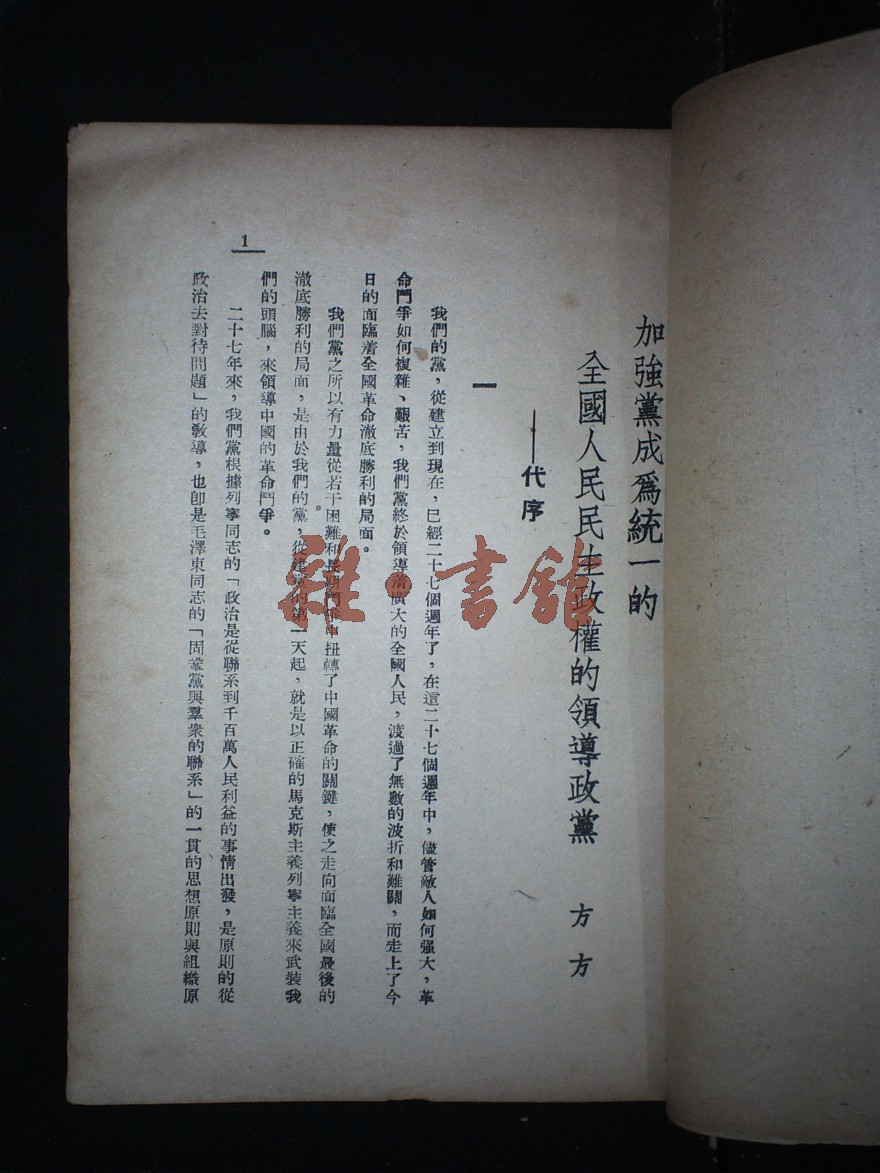 加強黨成爲統一的
全國人民民主政權的領導政黨　方方
——代序
一
我們的黨，從建立到現在，已經二十七個週年了，在這二十七個週年中，儘管敵人如何强大，革
命鬥爭如何複雜、艱苦，我們黨終於領導着廣大的全國人民，渡過了無數的波折和難關，而走上了今
日的面臨着全國革命澈底勝利的局面。
我們黨之所以有力量從若干困難和長期鬥爭中扭轉了中國革命的關鍵，使之走向面臨全國最後的
澈底勝利的局面，是由於我們的黨，從建黨的第一天起，就是以正確的馬克斯主義列寧主義來武裝我
們的頭腦，來領導中國的革命鬥爭。
二十七年來，我們黨根據列寧同志的「政治是從聯系到千百萬人民利益的事情出發，是原則的從
政治去對待問題」的敎導，也卽是毛澤東同志的「固鞏黨與羣衆的聯系」的一貫的思想原則與組織原
1
雜·書館